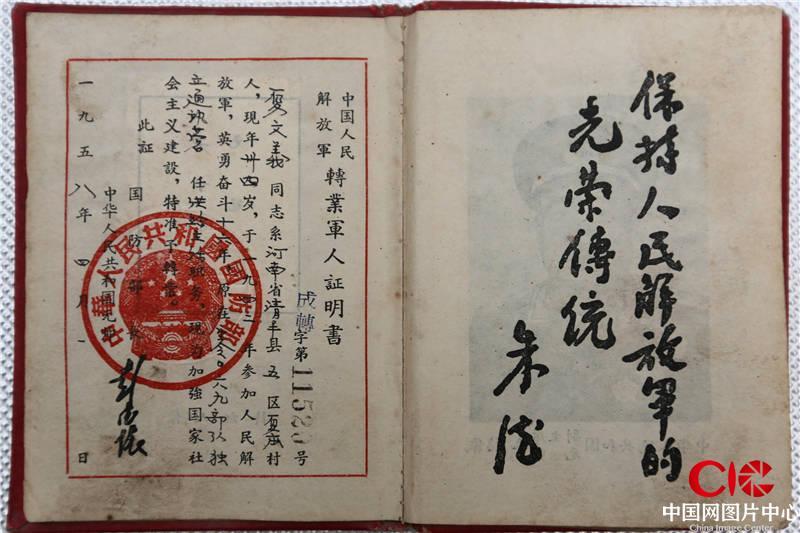 保持人民解放軍的
光荣傳统
朱德
中国人民
解放軍
轉業軍人証明書
成轉字第号
夏文義同志系河南省清丰县五区夏庄村
人，現年卅四岁，于一九四二年参加人民解
放軍，英勇奋斗十年，原在九部队独
立通訊营 任主任职务。現为加強国家社
会主义建設，特准予轉業。
此証
国防部長
中华人民共和國元帥
彭德怀
一九五八年四月一日
中華人民共和國國防部
CIC
中国网图片中心
China Image Center